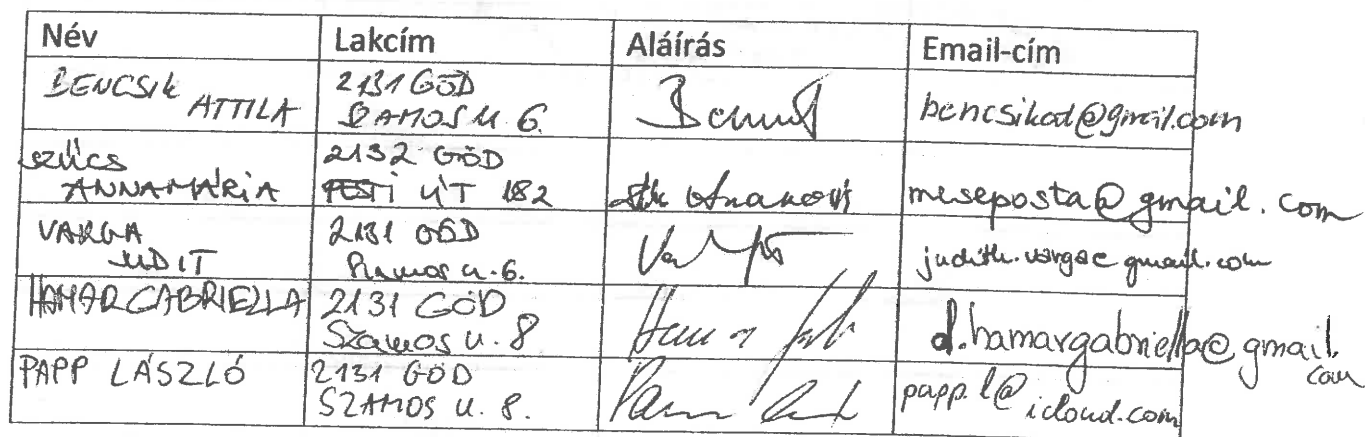 Név Lakcím Aláírás Email-cím
BENCSIK ATTILA 2131 GÖD SZAMOS U 6. bencsikat@gmail.com
SZŰCS ANNAMÁRIA 2132 GÖD PESTI ÚT 182 meseposta@gmail.com
VARGA JUDIT 2131 GÖD Szamos u. 6. judith.varga@gmail.com
HAMAR GABRIELLA 2131 GÖD Szamos u. 8 d.hamargabriella@gmail.com
PAPP LÁSZLÓ 2131 GÖD SZAMOS U. 8. papp.l@icloud.com